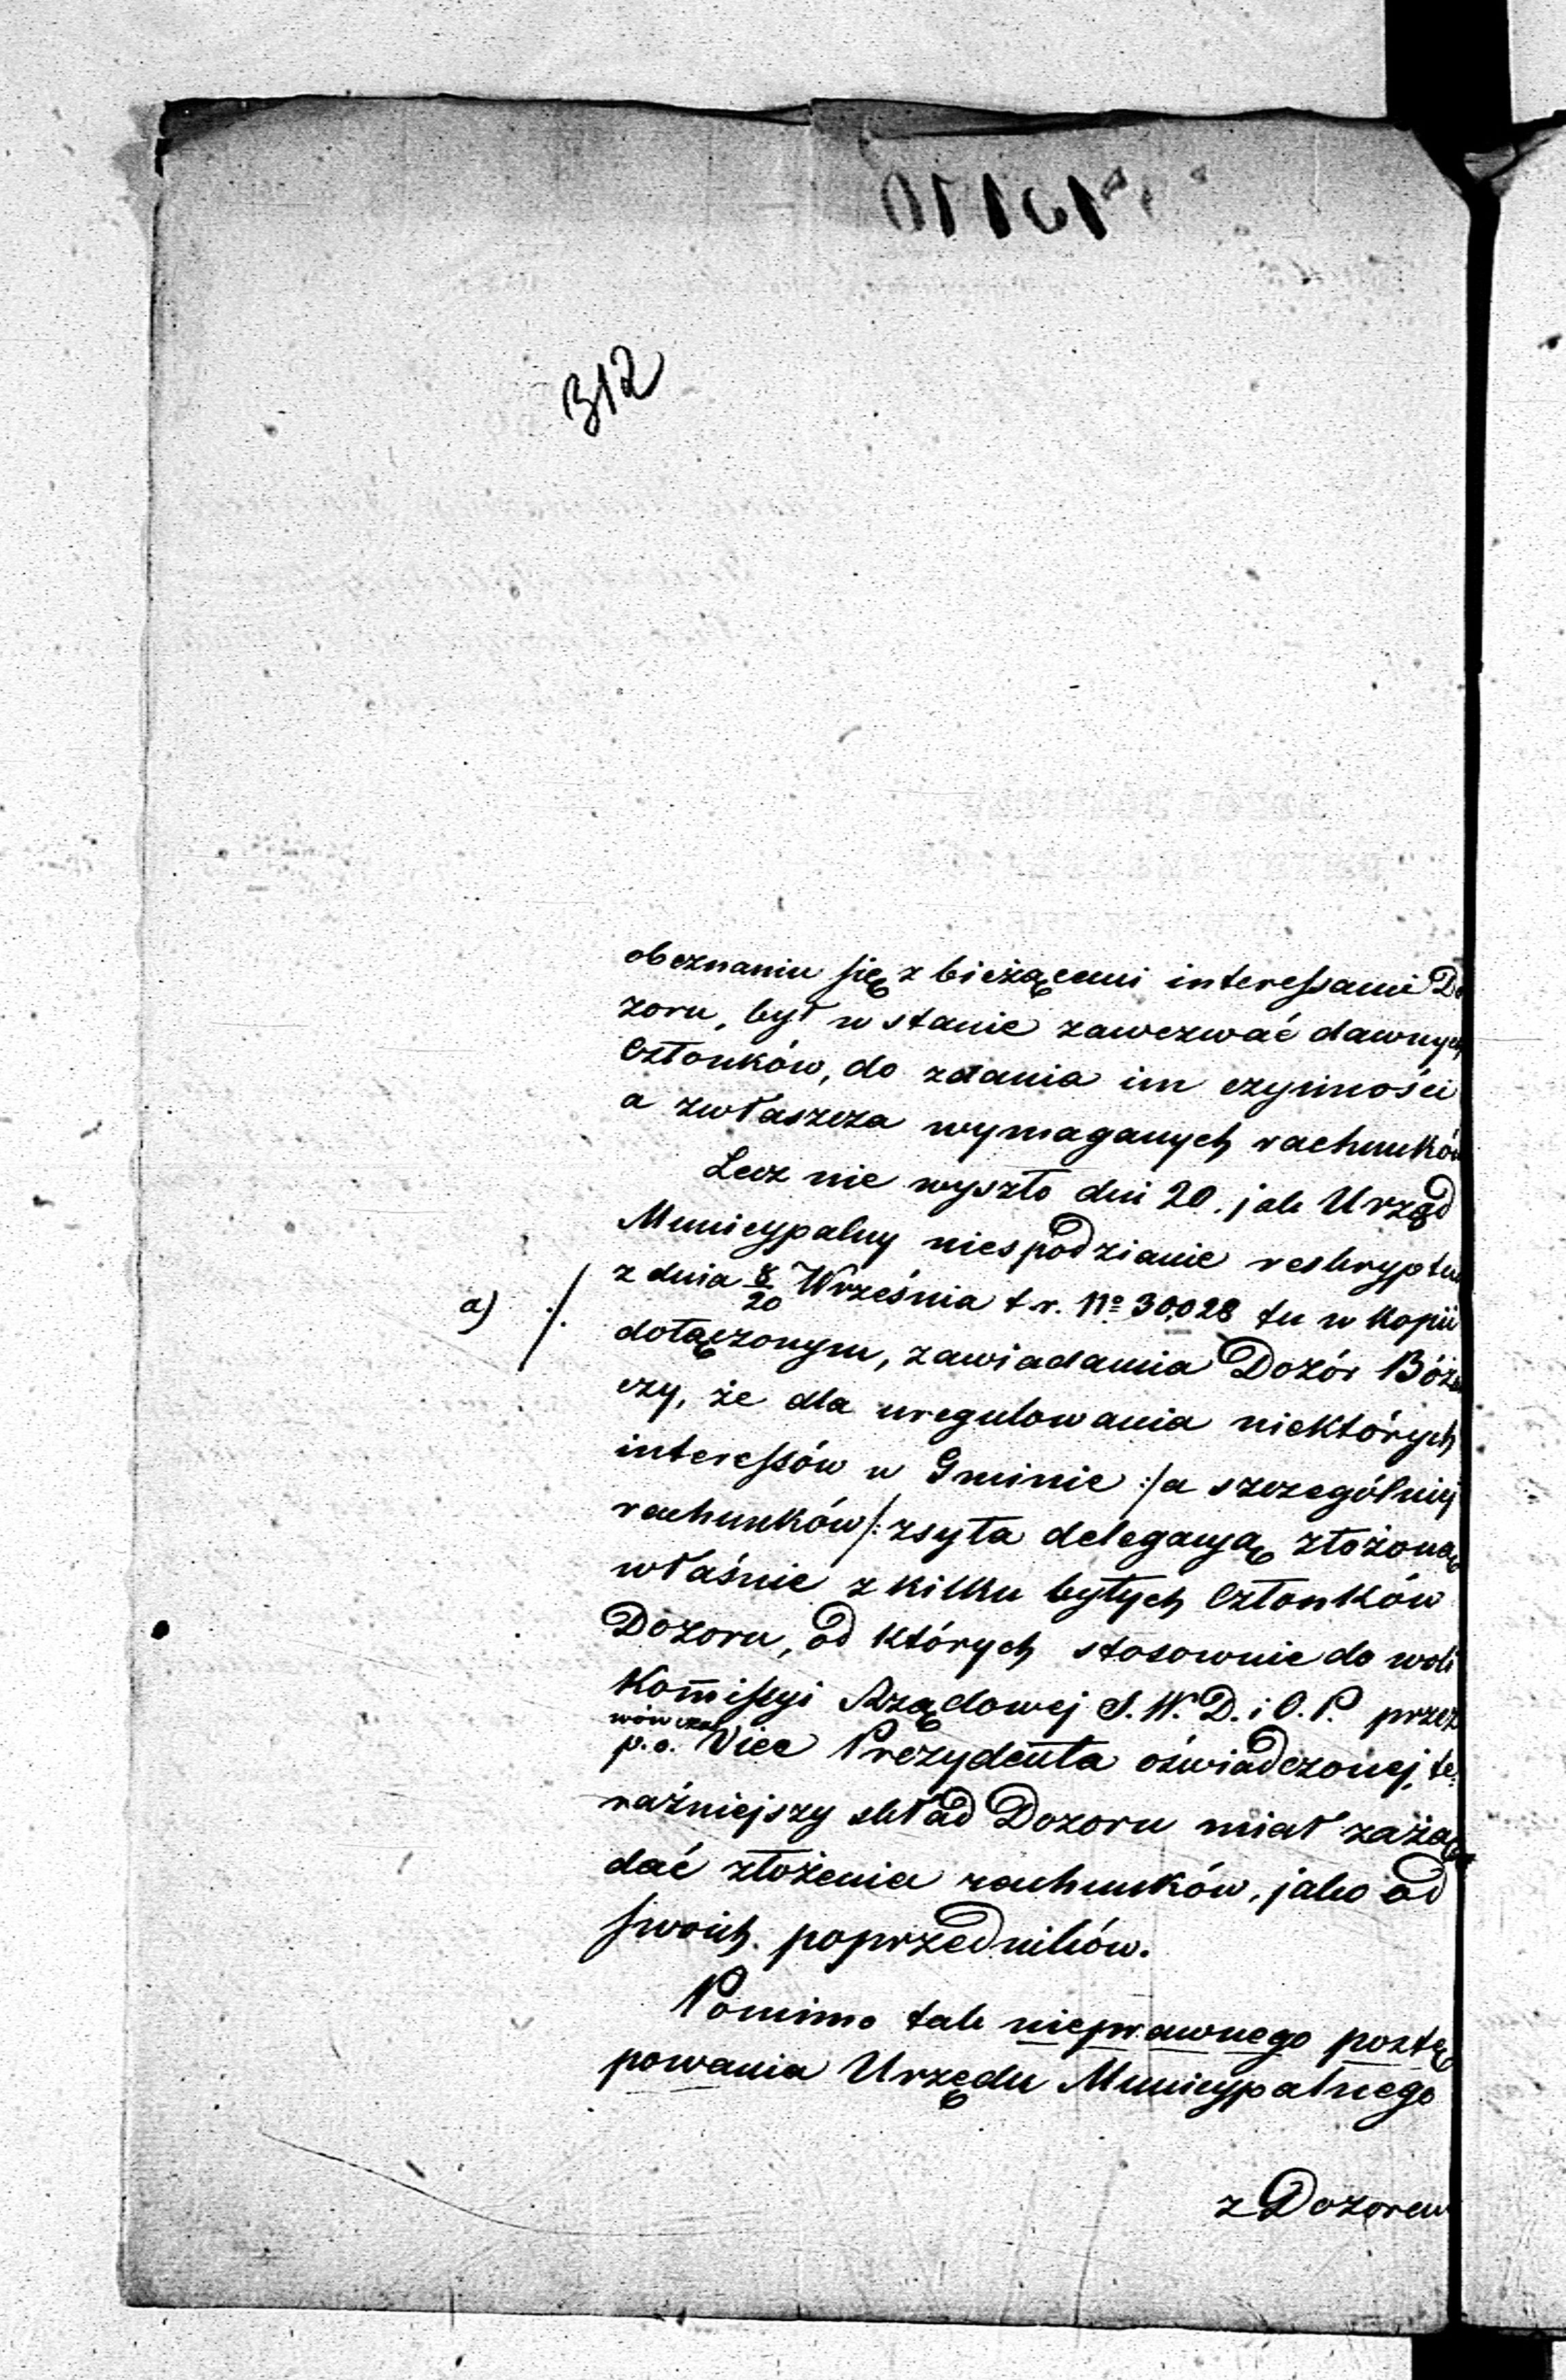 312
obeznaniu się z bieżącemi interessami Do
zoru, był w stanie zawezwać dawnych
Członków, do zdania im czynności
a zwłaszcza wymaganych rachunków
Lecz nie wyszło dni 20. jak Urząd
Municypalny niespodzianie reskryptem
a) ./. z dnia 8/20 Września t. r. No 30,028 tu w Kopii
dołączonym, zawiadamia Dozór Bóżni
czy, że dla uregulowania niektórych
interessów w Gminie :/a szczególniej
rachunków/: zsyła delegacyą złożoną
właśnie z kilku byłych Członków
Dozoru, od których stosownie do woli
Kommissyi Rządowej S. W. D. i O. P. przez
wówczas
p. o. Vice Prezydenta oświadczonej, te,
raźniejszy skład Dozoru miał zażą
dać złożenia rachunków, jako od
swoich poprzedników.
Pomimo tak nieprawnego postę
powania Urzędu Municypalnego
z Dozorem